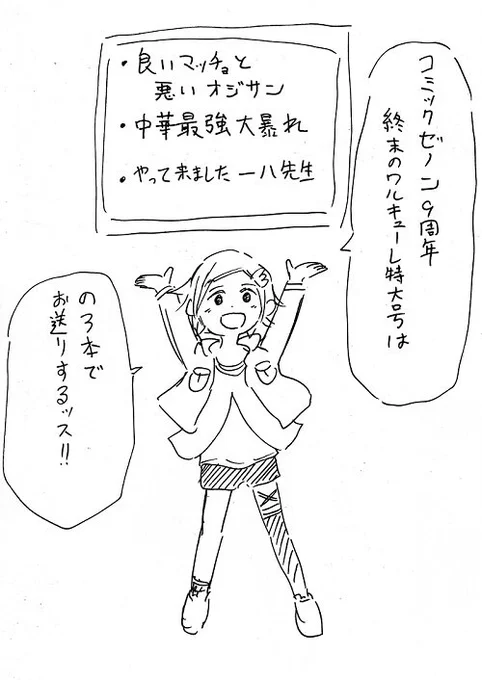 コミックゼノン9周年
終末のワルキューレ特大号は
・良いマッチョと
悪いオジサン
・中華最強大暴れ
・やって来ました一八先生
の3本で
お送りするッス!!